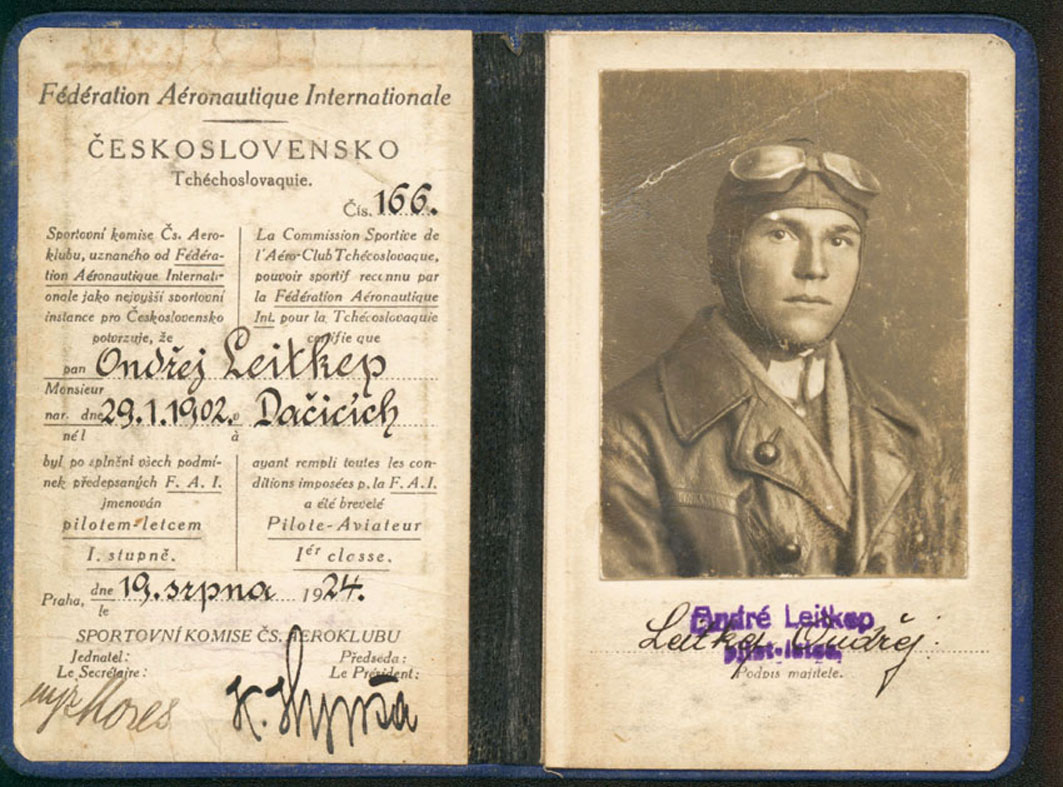 Fédération Aéronautique Internationale
ČESKOSLOVENSKO
Tchéchoslovaquie.
Čís. 166.
Sportovní komise Čs. Aero-
klubu, uznaného od Fédéra-
tion Aéronautique Internati-
onale jako nejvyšší sportovní
instance pro Československo
potvrzuje, že
La Commission Sportive de
l'Aéro-Club Tchécoslovaque,
pouvoir sportif reconnu par
la Fédération Aéronautique
Int. pour la Tchécoslovaquie
certifie que
pan Ondřej Leitkep
Monsieur
nar. dne 29.1.1902. v Dačicích
né l à
byl po splnění všech podmí-
nek předepsaných F. A. I.
jmenován
pilotem-letcem
I. stupně.
ayant rempli toutes les con-
ditions imposées p. la F. A. I.
a été brevelé
Pilote-Aviateur
Iér classe.
Praha, dne 19. srpna 1924.
le
SPORTOVNÍ KOMISE ČS. AEROKLUBU
Jednatel:
Le Secrétaire:
Předseda:
Le Président:
André Leitkep
Leitkep Ondřej.
pilot-letec
Podpis majitele.